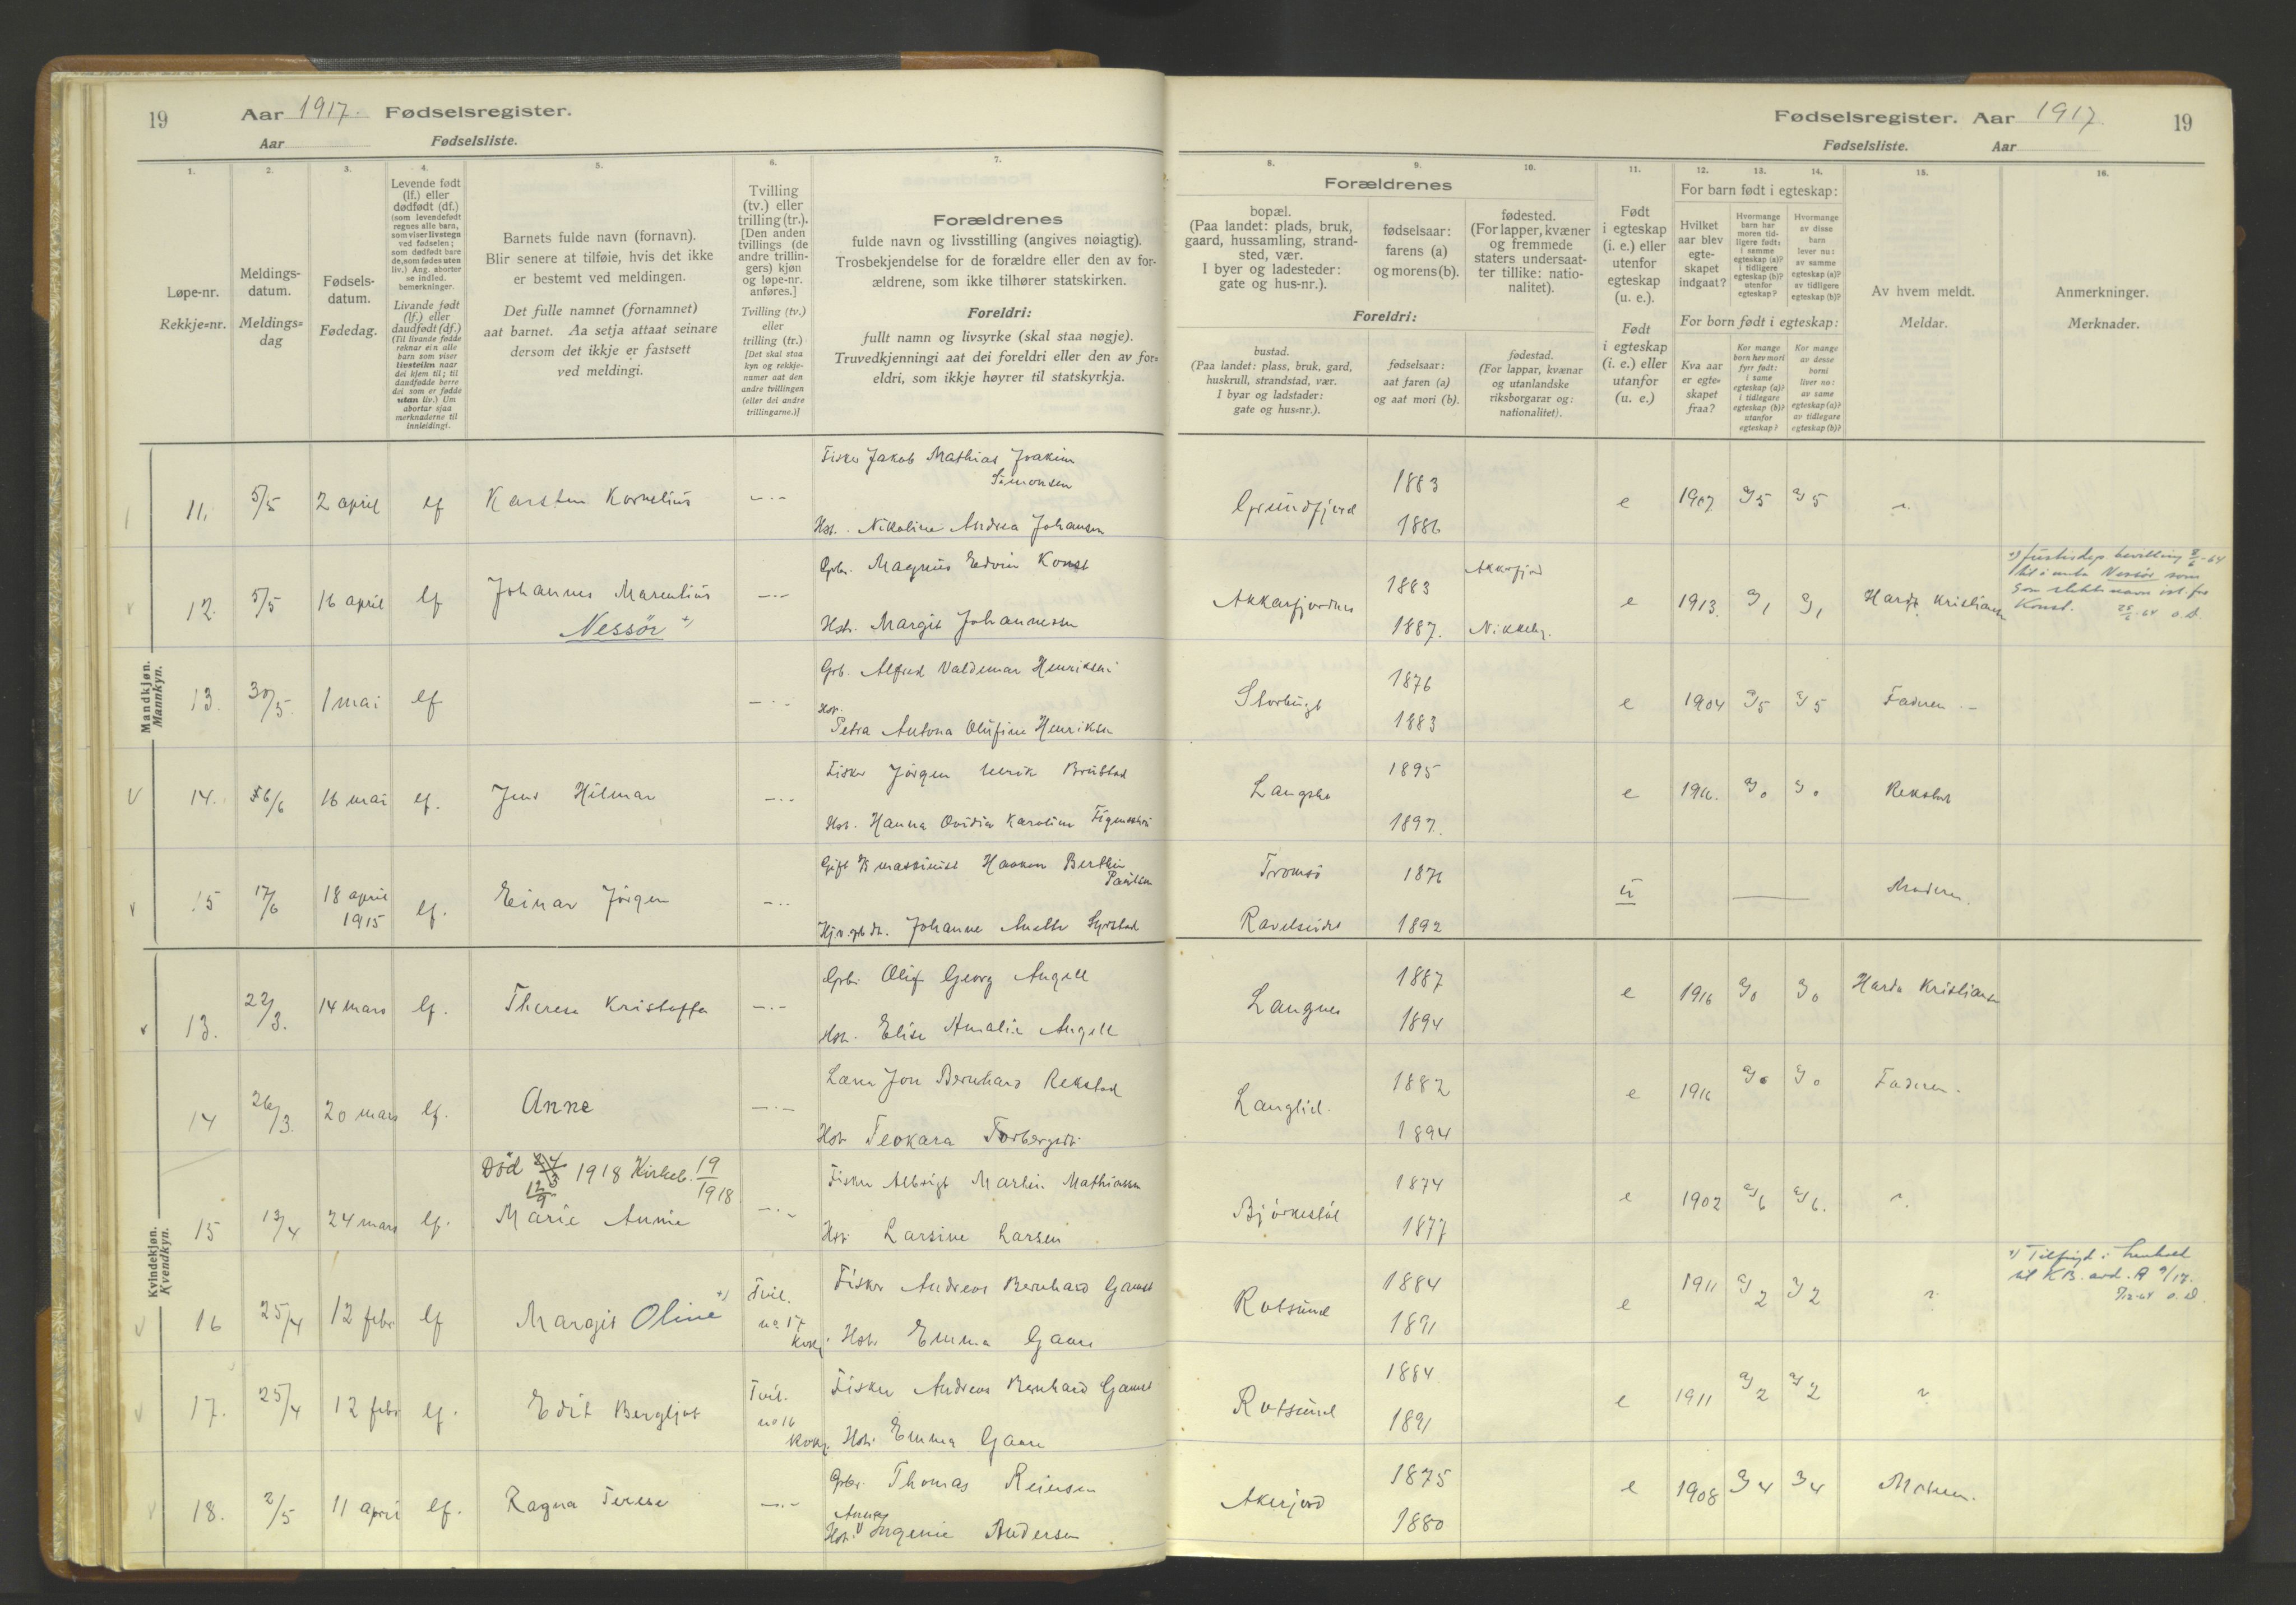 19 Aar 1917. Fødselsregister.
Aar Fødselsliste.
Fødselsregister. Aar 1917. 19
Fødselsliste. Aar
1. 2. 3. 4. 5. 6. 7.
Løpe-nr.
Rekkje-nr.
Meldings-
datum.
Meldings-
dag
Fødsels-
datum.
Fødedag.
Levende født
(lf.) eller
dødfødt (df.)
(som levendefødt
regnes alle barn,
som viser livstegn
ved fødselen;
som dødfødt bare
de, som fødes uten
liv.) Ang. aborter
se indled.
bemerkninger.
Livande født
(lf.) eller
daudfødt (df.)
(Til livande fødde
reknar ein alle
barn som viser
livsteikn naar
dei kjem til; til
daudfødde berre
dei som er fødde
utan liv.) Um
abortar sjaa
merknaderne til
innleidingi.
Barnets fulde navn (fornavn).
Blir senere at tilføie, hvis det ikke
er bestemt ved meldingen.
Det fulle namnet (fornamnet)
aat barnet. Aa setja attaat seinare
dersom det ikkje er fastsett
ved meldingi.
Tvilling
(tv.) eller
trilling (tr.).
[Den anden
tvillings (de
andre trillin-
gers) kjøn
og løpe-nr.
anføres.]
Tvilling (tv.)
eller
trilling (tr.)
[Det skal staa
kyn og rekkje-
numer aat den
andre tvillingen
(eller dei andre
trillingarne.)]
Forældrenes
fulde navn og livsstilling (angives nøiagtig).
Trosbekjendelse for de forældre eller den av for-
ældrene, som ikke tilhører statskirken.
Foreldri:
fullt namn og livsyrke (skal staa nøgje).
Truvedkjenningi aat dei foreldri eller den av for-
eldri, som ikkje høyrer til statskyrkja.
8. 9. 10. 11. 12. 13. 14. 15. 16.
Forældrenes
bopæl.
(Paa landet: plads, bruk,
gaard, hussamling, strand-
sted, vær.
I byer og ladesteder:
gate og hus-nr.).
fødselsaar:
farens (a)
og morens (b).
fødested.
(For lapper, kvæner
og fremmede
staters undersaat-
ter tillike: natio-
nalitet).
Foreldri:
bustad.
(Paa landet: plass, bruk, gard,
huskrull, strandstad, vær.
I byar og ladstader:
gate og hus-nr.).
fødselsaar:
aat faren (a)
og aat mori (b).
fødestad.
(For lappar, kvænar
og utanlandske
riksborgarar og:
nationalitet).
Født
i egteskap
(i. e.) eller
utenfor
egteskap
(u. e.).
Født
i egteskap
(i. e.) eller
utanfor
(u. e.)
For barn født i egteskap:
Hvilket
aar blev
egte-
skapet
indgaat?
Hvormange
barn har
moren tid-
ligere født:
i samme
egteskap (a)?
i tidligere
egteskap (b)?
utenfor
egteskap?
Hvormange
av disse
barn
lever nu:
av samme
egteskap (a)?
av tidligere
egteskap (b)?
For born født i egteskap:
Kva aar
er egte-
skapet
fraa?
Kor mange
born hev mori
fyrr født:
i same
egteskap (a)?
i tidlegare
egteskap (b)?
utanfor
egteskap?
Kor mange
av desse
borni
liver no:
av same
egteskap (a)?
av tidlegare
egteskap (b)?
Av hvem meldt.
Meldar.
Anmerkninger.
Merknader.
Mandkjøn.
Mannkyn.
Fisker Jakob Mathias Joakim
Simonsen
11. 5/5 2 april lf Karsten Kornelius
Hst. Nikoline Andrea Johansen
Grundfjord 1883 1886 e 1907 a/5 a/5
Gbr. Magnus Edvin Konst
12. 5/5 16 april lf Johannes Marentius
Nessør +)
Hstr. Margit Johannesen
Akkarfjordnes 1883 1887. e 1913. a/1 a/1 Harda Kristiansen
Gbr. Alfred Valdemar Henriksen
13. 30/5. 1 mai lf
Hst.
Petra Antona Olufine Henriksen
Storbugt 1876 1883 e 1904 a/5 a/5 Faderen
Fisker Jørgen
14. 16 mai lf. Jens Hilmar
Hst. Hanna Ovidia Karoline
1895 1897. e 1916. a/0 a/0 Rekstad
Gift maskinist Haakon Berthin
Paulsen
15 17/6 18 april
1915 lf. Einar Jørgen
Johanne
Tromsø 1876
1892 u Moderen.
Kvindekjøn.
Kvendkyn.
Gbr. Oluf Georg Angell
13. 22/3. 14 mars lf. Therese Kristoffa
Hst. Elise Amalie Angell
Langnes 1887 1894 e 1916 a/0 a/0 Harda Kristiansen
Lærer Jon Bernhard Rekstad
14 26/3. 20 mars lf. Anne
Hst. Teokara Torbergsdtr.
Langlid. 1882 1894 e 1916 a/0 a/0 Faderen.
Død 12/9 1918 Kirkeb. 19/1918
Fisker Albrigt Martin Mathiassen
15 13/4 24 mars lf. Marie Annie
Hst. Larsine Larsen
1874 1877 e 1902 a/6 a/6.
Fisker Andreas Bernhard Gamst
16 25/4 12 febr lf Margit Oline +)
Tvil.
no 17
kvkj.
Hst. Emma Gaare
Rotsund 1884 1891 e 1911 a/2 a/2
Fisker Andreas Bernhard Gamst
17. 25/4 12 febr lf. Edit Bergljot
Tvil.
no 16
kvkj.
Hst. Emma Gaare
Rotsund 1884 1891 e 1911 a/2 a/2
Gbr. Thomas Reiersen
18. 2/5 11 april lf. Ragna Terese
Anna
Hst. Ingenie Andersen
1875 1880 e 1908 a/4 a/4